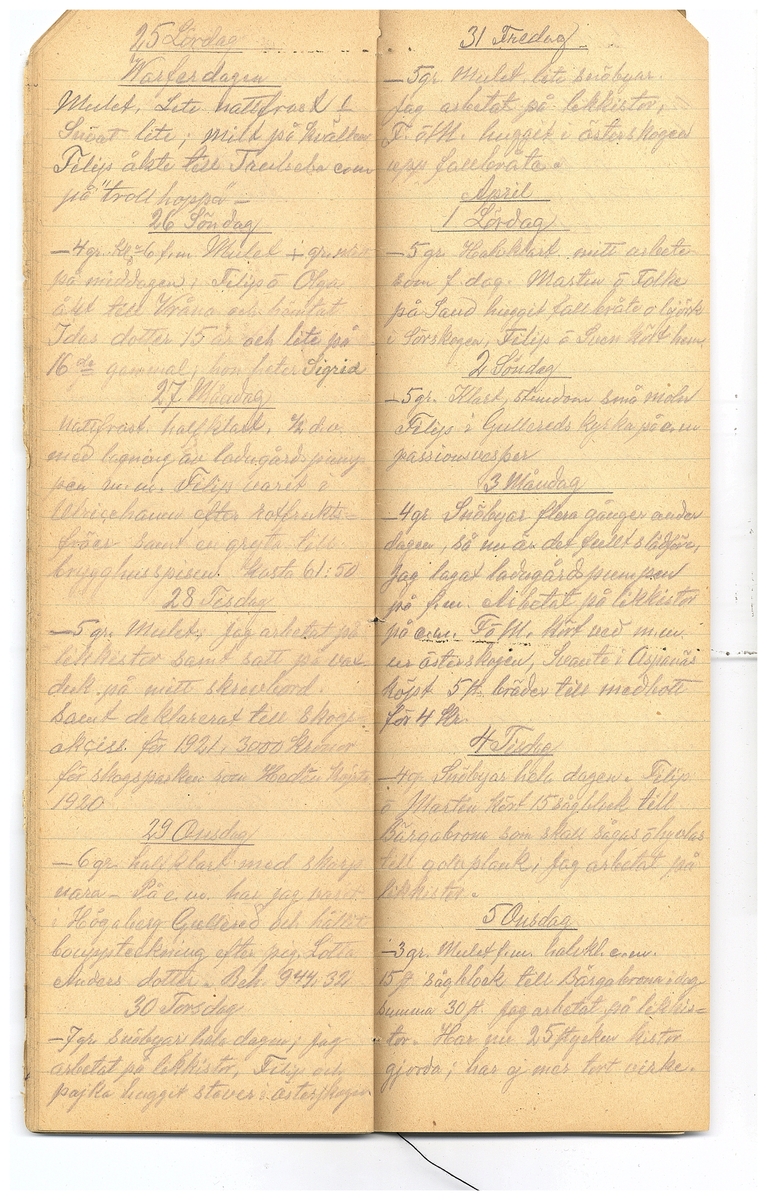 25 Lördag
Warferdagen
Mulet, Lite nattfrost &
Snöat lite; mildt på kvällen
Filip åkte till
på "trollhoppa" –
26 Söndag
–4 gr. kl 6 f.m. Mulet + gr.
på middagen; Filip ö Olga
åkt till Vråna och hämtat
Idas dotter 15 år och lite på
16 de gammal; hon heter Sigrid
27 Måndag
nattfrost. halfklart, ½ d.v.
med lagning av ladugårdspum-
pen m.m. Filip varit i
Ulricehamn efter rotfrukts=
fröer samt en gryta till
brygghusspisen. kosta 61:50
28 Tisdag
–5 gr. Mulet; Jag arbetat på
likkistor samt satt på vax-
duk på mitt skrivbord.
Samt deklarerat till skogs
akciss för 1921, 3000 kronor
för skogsparken som Hedén köpte
1920
29 Onsdag
–6 gr. halfklart med skarp
vara – På e.m. har jag varit
i Högaberg Gullered och hållit
bouppteckning efter pig. Lotta
Anders dotter. Beh. 944,32
30 Torsdag
–7 gr. Snöbyar hela dagen; jag
arbetat på likkistor, Filip och
pojka huggit staver i österskogen
31 Fredag
–5 gr. Mulet. lite snöbyar.
Jag arbetat på likkistor,
F. ö M. huggit i österskogen
upp fallbråte.
April
1 Lördag
–5 gr. Halfklart mitt arbete
som f. dag. Martin ö Folke
på Sand huggit fallbråte o björk
i Sörskogen, Filip ö Sven kört hem
2 Söndag
–5 gr. Klart, stundom små moln
Filip i Gullereds kyrka på e.m
passionsvesper
3 Måndag
–4 gr. Snöbyar flera gånger under
dagen, så nu är det fullt slädföre,
Jag lagat ladugårdspumpen
på f.m. Arbetat på likkistor
på e.m. F ö M. kört ved m.m.
ur österskogen, Svante i Aspanäs
köpt 5 ft. bräder till
för 4 Kr.
4 Tisdag
–4 gr Snöbyar hela dagen. Filip
ö Martin kört 15 sågblock till
Bärgabrona som skall sågas ö hyvlas
till golvplank; Jag arbetat på
likkistor.
5 Onsdag
–3 gr. Mulet f.m. halfkl. e.m.
15 ft sågblock till Bärgabrona i dag
Summa 30 ft. Jag arbetat på likkis=
tor. Har nu 25 stycken kistor
gjorda; har ej mer tort virke.